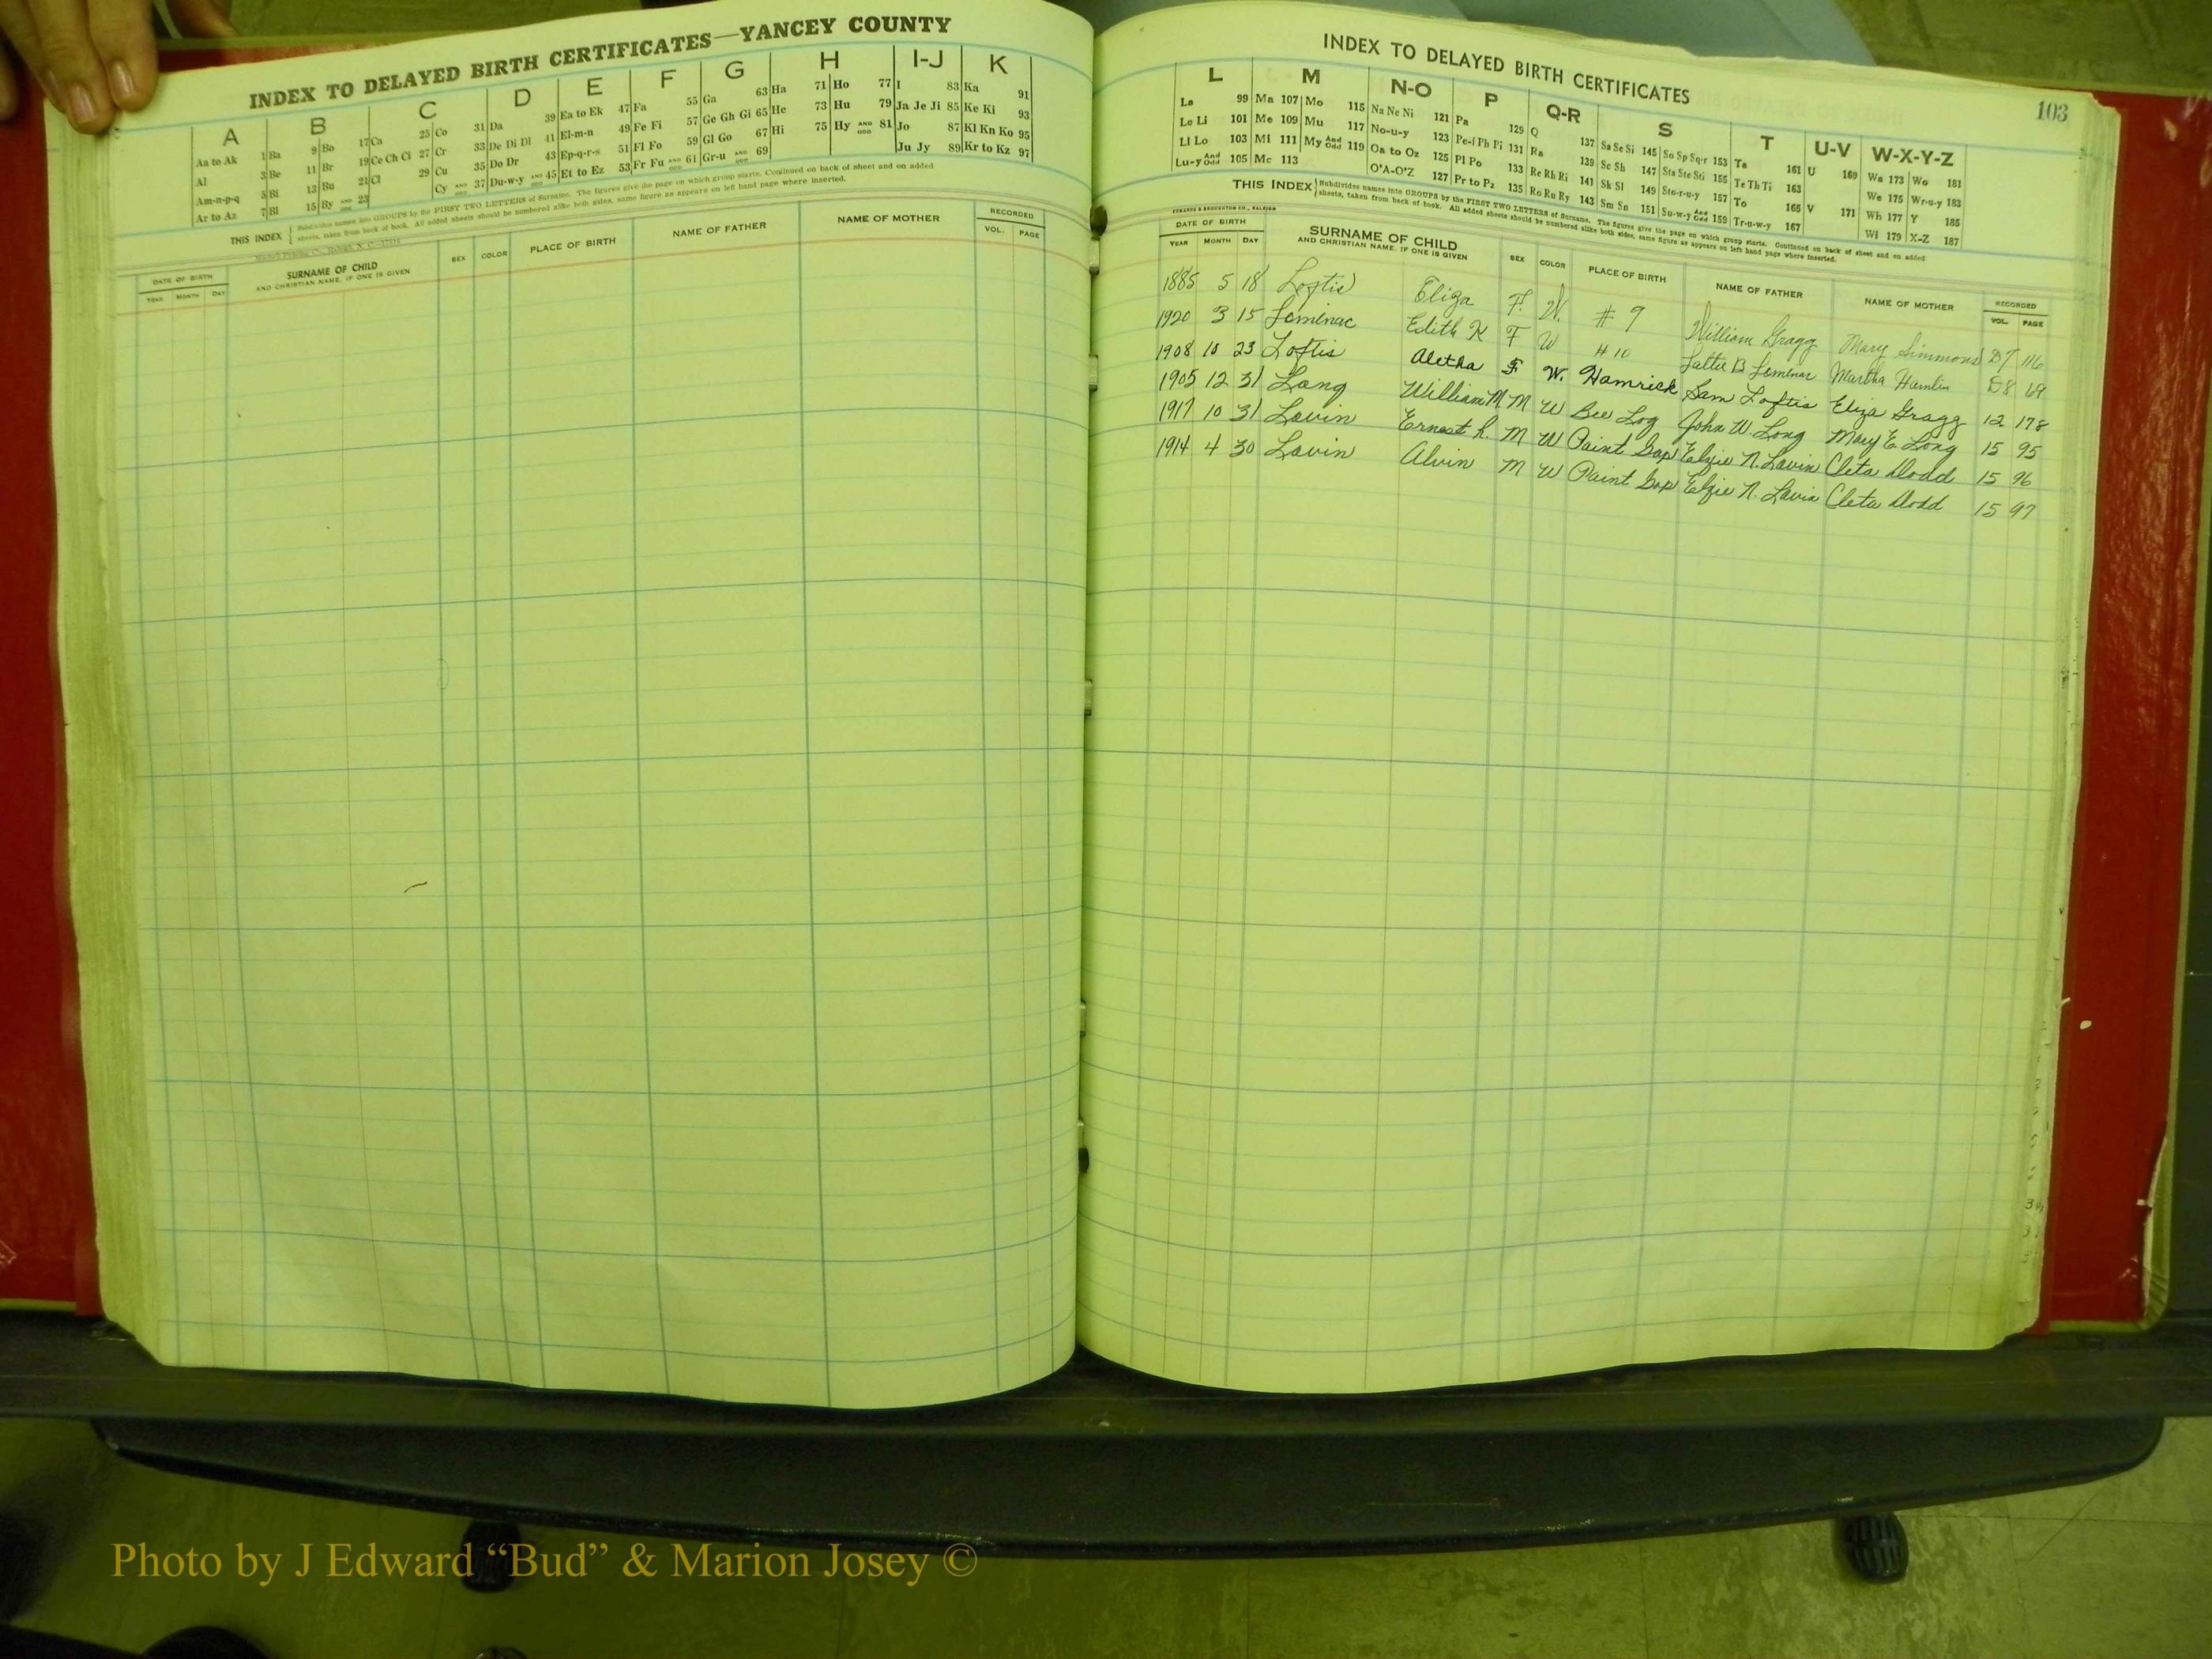 INDEX TO DELAYED BIRTH CERTIFICATES—YANCEY COUNTY
A B C D E F G H I-J K
Aa to Ak 1 Ba 9 Bo 17 Ca 25 Co 31 Da 39 Ea to Ek 47 Fa 55 Ga 63 Ha 71 Ho 77 I 83 Ka 91
Al 3 Be 11 Br 19 Ce Ch Ci 27 Cr 33 De Di Dl 41 El-m-n 49 Fe Fi 57 Ge Gh Gi 65 He 73 Hu 79 Ja Je Ji 85 Ke Ki 93
Am-n-p-q 5 Bi 13 Bu 21 Cl 29 Cu 35 Do Dr 43 Ep-q-r-s 51 Fl Fo 59 Gl Go 67 Hi 75 Hy AND ODD 81 Jo 87 Kl Kn Ko 95
Ar to Az 7 Bl 15 By AND ODD 23 Cy AND ODD 37 Du-w-y AND ODD 45 Et to Ez 53 Fr Fu AND ODD 61 Gr-u AND ODD 69 Ju Jy 89 Kr to Kz 97
THIS INDEX Subdivides names into GROUPS by the FIRST TWO LETTERS of Surname. The figures give the page on which group starts. Continued on back of sheet and on added
sheets, taken from back of book. All added sheets should be numbered alike both sides, same figure as appears on left hand page where inserted.
DATE OF BIRTH SURNAME OF CHILD SEX COLOR PLACE OF BIRTH NAME OF FATHER NAME OF MOTHER RECORDED
YEAR MONTH DAY AND CHRISTIAN NAME, IF ONE IS GIVEN VOL. PAGE
INDEX TO DELAYED BIRTH CERTIFICATES
103
L M N-O P Q-R S T U-V W-X-Y-Z
La 99 Ma 107 Mo 115 Na Ne Ni 121 Pa 129 Q 137 Sa Se Si 145 So Sp Sq-r 153 Ta 161 U 169 Wa 173 Wo 181
Le Li 101 Me 109 Mu 117 No-u-y 123 Pe-i Ph Pi 131 Ra 139 Sc Sh 147 Sta Ste Sti 155 Te Th Ti 163 We 175 Wr-u-y 183
Ll Lo 103 Mi 111 My And Odd 119 Oa to Oz 125 Pl Po 133 Re Rh Ri 141 Sk Sl 149 Sto-r-u-y 157 To 165 V 171 Wh 177 Y 185
Lu-y And Odd 105 Mc 113 O'A-O'Z 127 Pr to Pz 135 Ro Ru Ry 143 Sm Sn 151 Su-w-y And Odd 159 Tr-u-w-y 167 Wi 179 X-Z 187
THIS INDEX Subdivides names into GROUPS by the FIRST TWO LETTERS of Surname. The figures give the page on which group starts. Continued on back of sheet and on added
sheets, taken from back of book. All added sheets should be numbered alike both sides, same figure as appears on left hand page where inserted.
EDWARDS & BROUGHTON CO., RALEIGH
DATE OF BIRTH SURNAME OF CHILD SEX COLOR PLACE OF BIRTH NAME OF FATHER NAME OF MOTHER RECORDED
YEAR MONTH DAY AND CHRISTIAN NAME, IF ONE IS GIVEN VOL. PAGE
1885 5 18 Loftis Eliza F. W. # 9 William Gragg Mary Simmons D7 116
1920 3 15 Lominac Edith K F W # 10 Martha Hamlin D8 69
1908 10 23 Loftis Aletha F W. Hamrick Sam Loftis Eliza Gragg 12 178
1905 12 31 Long William M. M W Bee Log John W. Long Mary E. Long 15 95
1917 10 31 Lovin Ernest L. M W Paint Gap Elzie N. Lovin Cleta Dodd 15 96
1914 4 30 Lovin Alvin M W Paint Gap Elzie N. Lovin Cleta Dodd 15 97
Photo by J Edward “Bud” & Marion Josey ©